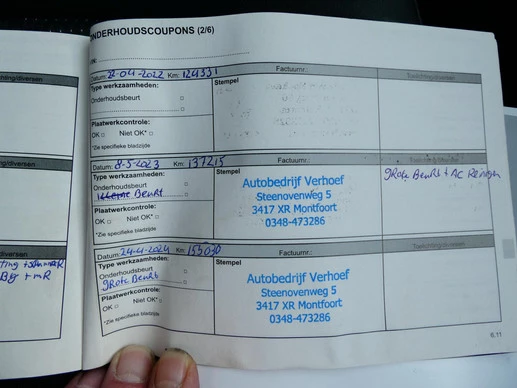 ONDERHOUDSCOUPONS (2/6)
Datum: 22-04-2022 Km: 124331 Factuurnr.: Toelichting/diversen
Type werkzaamheden: Stempel
Onderhoudsbeurt
Plaatwerkcontrole:
OK Niet OK*
*Zie specifieke bladzijde
Datum: 8-5-2023 Km: 137215 Factuurnr.:
Type werkzaamheden: Stempel grote Beurt + AC Reinigen
Onderhoudsbeurt
Beurt
Plaatwerkcontrole:
OK Niet OK*
*Zie specifieke bladzijde
Autobedrijf Verhoef
Steenovenweg 5
3417 XR Montfoort
0348-473286
Datum: 24-4-2024 Km: 155030 Factuurnr.: Toelichting/diversen
Type werkzaamheden: Stempel
Onderhoudsbeurt
grote Beurt
Plaatwerkcontrole:
OK Niet OK*
*Zie specifieke bladzijde
Autobedrijf Verhoef
Steenovenweg 5
3417 XR Montfoort
0348-473286
6.11